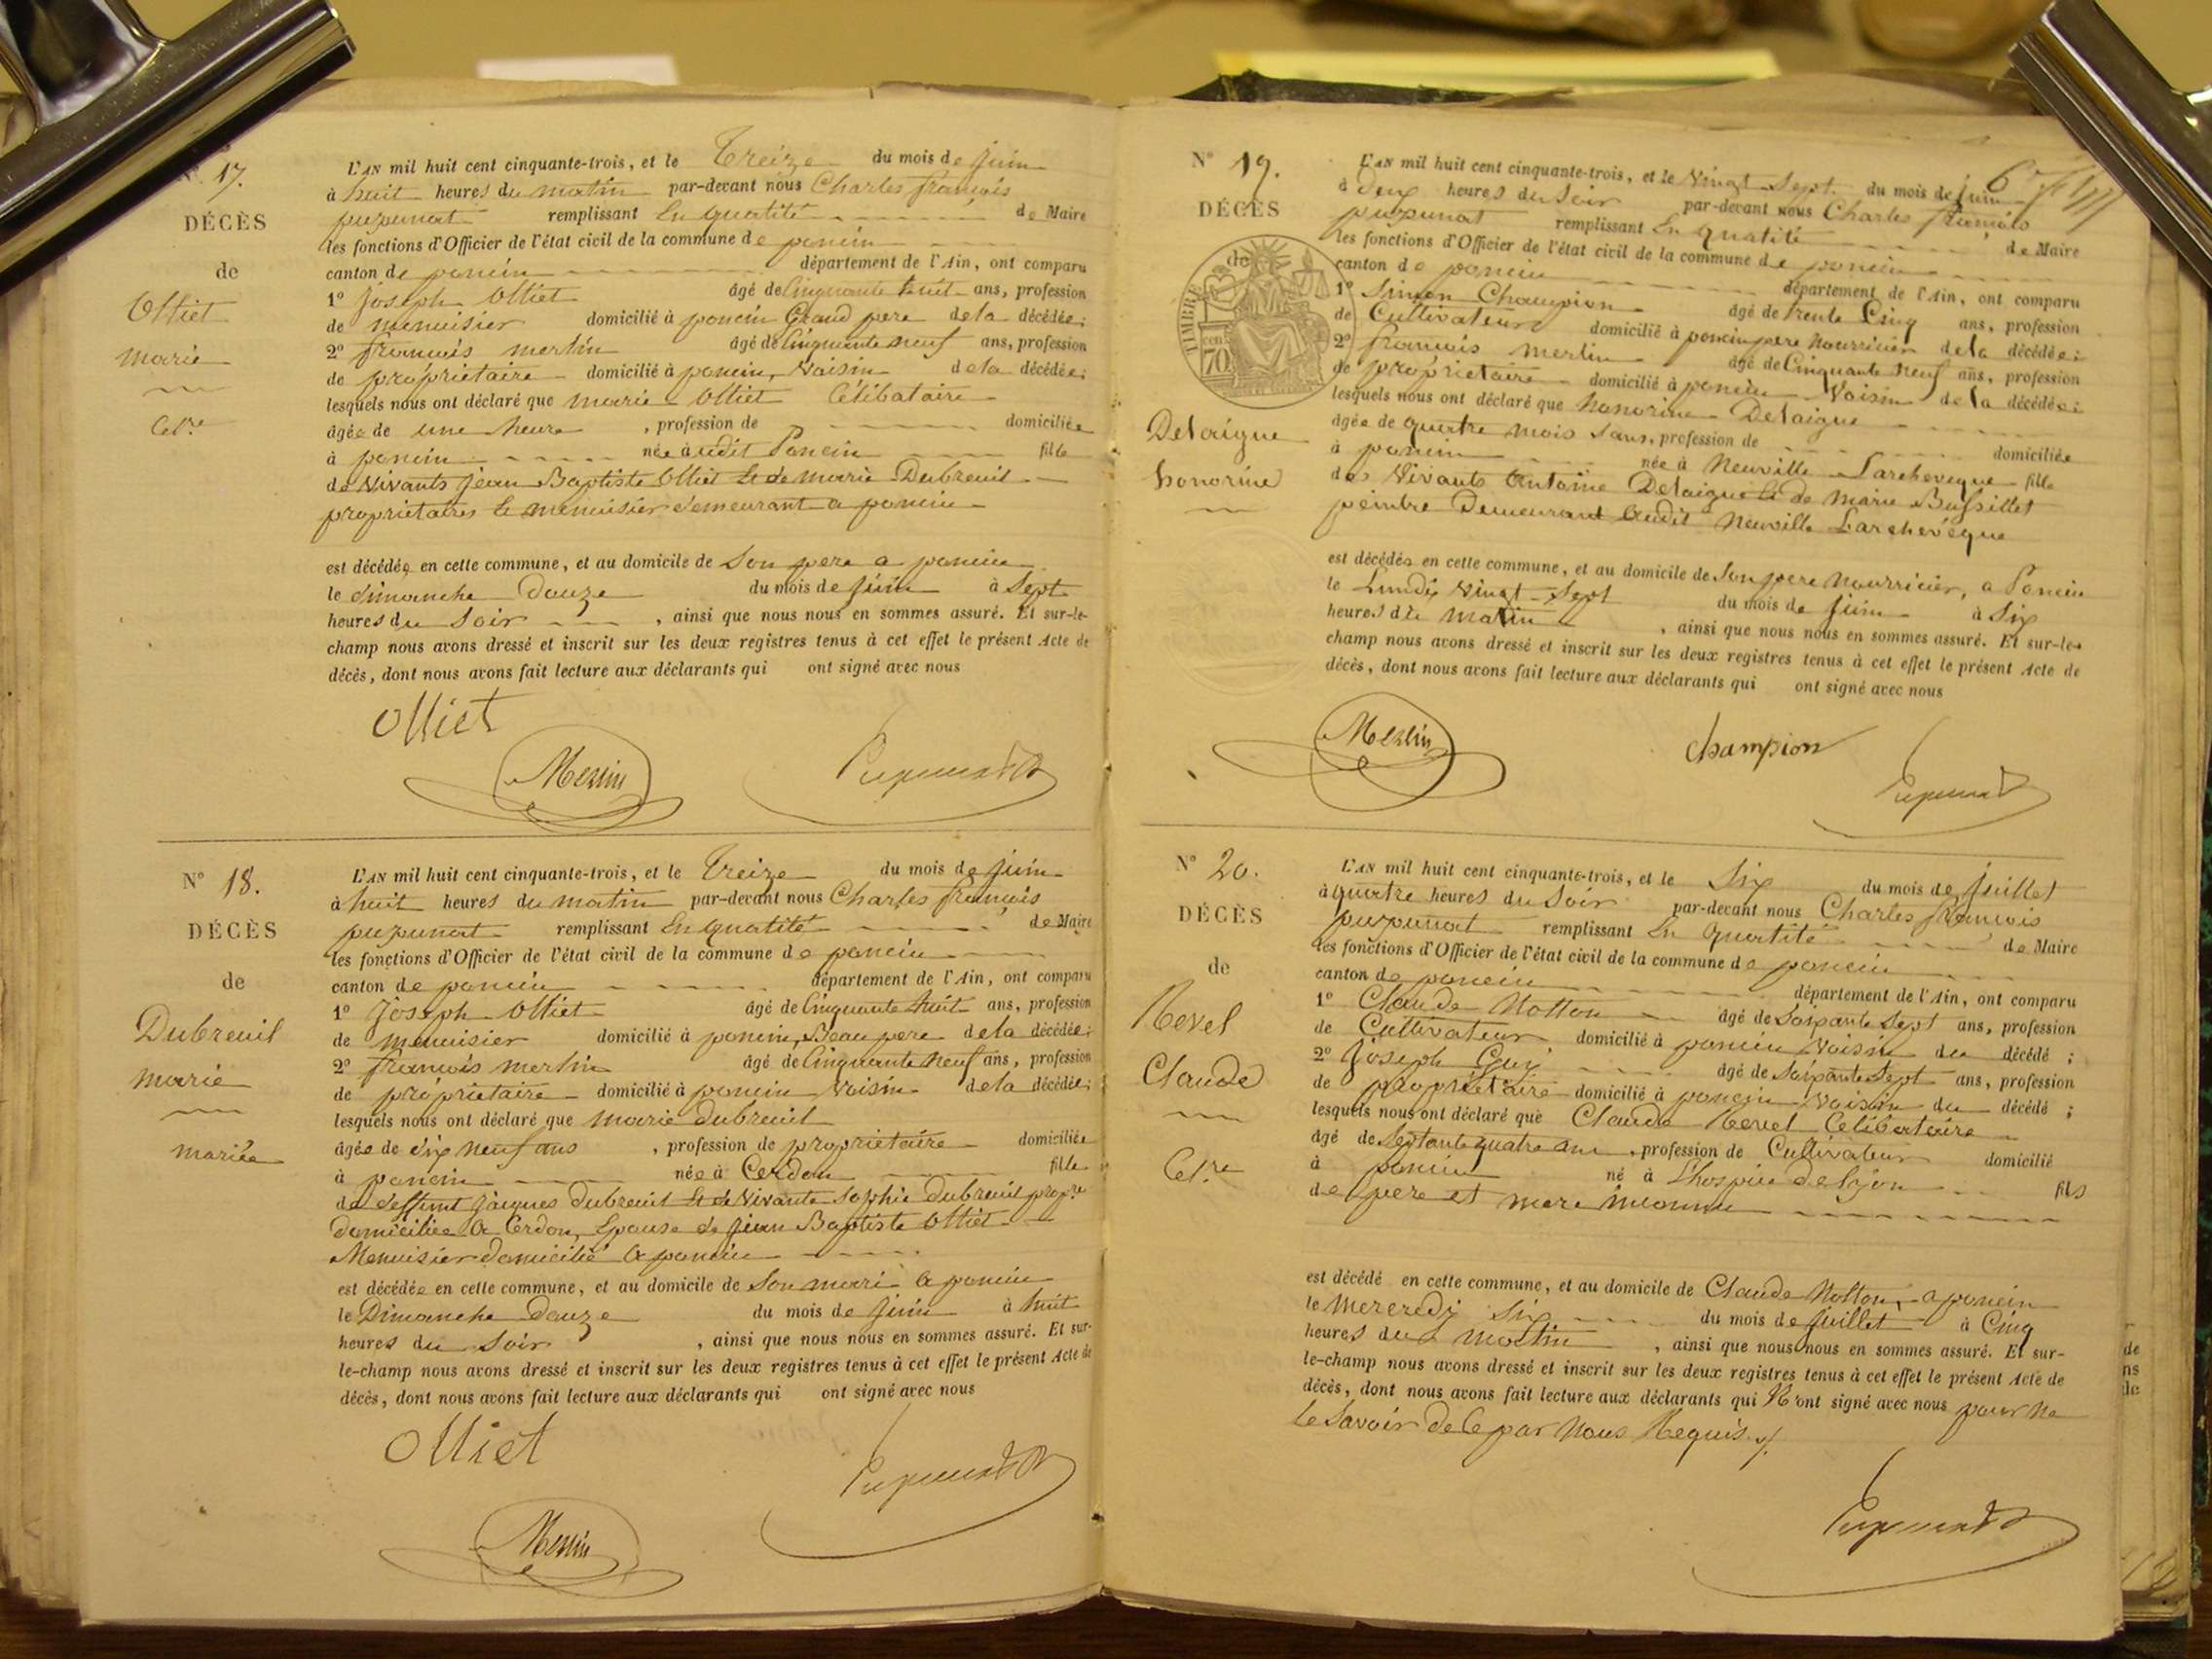 N° 17.
DÉCÈS
de
Olliet
marie
Cel.re
L'AN mil huit cent cinquante-trois, et le Treize du mois de juin
à huit heures du matin par-devant nous Charles françois
pupunat remplissant En qualité de Maire
les fonctions d'Officier de l'état civil de la commune de poncin
canton de poncin département de l'Ain, ont comparu
1° Joseph Olliet âgé de Cinquante huit ans, profession
de menuisier domicilié à poncin Grand pere de la décédée;
2° françois merlin âgé de Cinquante neuf ans, profession
de propriétaire domicilié à poncin, Voisin de la décédée;
lesquels nous ont déclaré que marie Olliet Célibataire
âgée de une heure , profession de domiciliée
à poncin née audit Poncin fille
de Vivants jean Baptiste Olliet Et de marie Dubreuil
propriétaires Et menuisier demeurant a poncin
est décédée en cette commune, et au domicile de Son pere a poncin
le dimanche Douze du mois de juin à Sept
heures du Soir , ainsi que nous nous en sommes assuré. Et sur-le-
champ nous avons dressé et inscrit sur les deux registres tenus à cet effet le présent Acte de
décès, dont nous avons fait lecture aux déclarants qui ont signé avec nous
Olliet
Merlin
Pupunat
N° 18.
DÉCÈS
de
Dubreuil
marie
mariée
L'AN mil huit cent cinquante-trois, et le Treize du mois de juin
à huit heures du matin par-devant nous Charles françois
pupunat remplissant En qualité de Maire
les fonctions d'Officier de l'état civil de la commune de poncin
canton de poncin département de l'Ain, ont comparu
1° Joseph Olliet âgé de Cinquante huit ans, profession
de menuisier domicilié à poncin, Beau pere de la décédée;
2° françois merlin âgé de Cinquante neuf ans, profession
de propriétaire domicilié à poncin Voisin de la décédée;
lesquels nous ont déclaré que marie Dubreuil
âgée de dix neuf ans , profession de propriétaire domiciliée
à poncin née à Cerdon fille
de deffunt jacques Dubreuil Et de Vivante Sophie Dubreuil prop.re
Domiciliée a Cerdon, Epouse de jean Baptiste Olliet
Menuisier domicilié a poncin
est décédée en cette commune, et au domicile de Son mari a poncin
le Dimanche Douze du mois de juin à huit
heures du Soir , ainsi que nous nous en sommes assuré. Et sur-
le-champ nous avons dressé et inscrit sur les deux registres tenus à cet effet le présent Acte de
décès, dont nous avons fait lecture aux déclarants qui ont signé avec nous
Olliet
Pupunat
Merlin
N° 19.
DÉCÈS
de
TIMBRE
70
Delaigue
honorine
L'AN mil huit cent cinquante-trois, et le Vingt Sept du mois de juin
à Deux heures du Soir par-devant nous Charles françois
pupunat remplissant En qualité de Maire
les fonctions d'Officier de l'état civil de la commune de poncin
canton de poncin département de l'Ain, ont comparu
1° Simon Champion âgé de trente Cinq ans, profession
de Cultivateur domicilié à poncin pere Nourricier de la décédée;
2° françois merlin âgé de Cinquante neuf ans, profession
de propriétaire domicilié à poncin Voisin de la décédée;
lesquels nous ont déclaré que honorine Delaigue
âgée de quatre mois Sans, profession de domiciliée
à poncin née à Neuville Larcheveque fille
des Vivants Antoine Delaigue Et de Marie Bussillet
peintre Demeurant audit Neuville Larchevêque
est décédée en cette commune, et au domicile de Son pere nourricier, a Poncin
le Lundi Vingt-Sept du mois de juin à Six
heures du matin , ainsi que nous nous en sommes assuré. Et sur-le-
champ nous avons dressé et inscrit sur les deux registres tenus à cet effet le présent Acte de
décès, dont nous avons fait lecture aux déclarants qui ont signé avec nous
Merlin
Champion
Pupunat
N° 20.
DÉCÈS
de
Revel
Claude
Cel.re
L'AN mil huit cent cinquante-trois, et le Six du mois de juillet
à quatre heures du Soir par-devant nous Charles françois
pupunat remplissant En qualité de Maire
les fonctions d'Officier de l'état civil de la commune de poncin
canton de poncin département de l'Ain, ont comparu
1° Claude Notton âgé de Soixante Sept ans, profession
de Cultivateur domicilié à poncin Voisin du décédé ;
2° Joseph Guy âgé de Soixante Sept ans, profession
de propriétaire domicilié à poncin Voisin du décédé ;
lesquels nous ont déclaré que Claude Revel Célibataire
âgé de Septante quatre ans , profession de Cultivateur domicilié
à poncin né à L'hospice de Lyon fils
de pere et mere inconnu
est décédé en cette commune, et au domicile de Claude Notton, a poncin
le mercredi Six du mois de juillet à Cinq
heures du matin , ainsi que nous nous en sommes assuré. Et sur-
le-champ nous avons dressé et inscrit sur les deux registres tenus à cet effet le présent Acte de
décès, dont nous avons fait lecture aux déclarants qui N'ont signé avec nous pour ne
le Savoir de Ce par Nous Requis
Pupunat